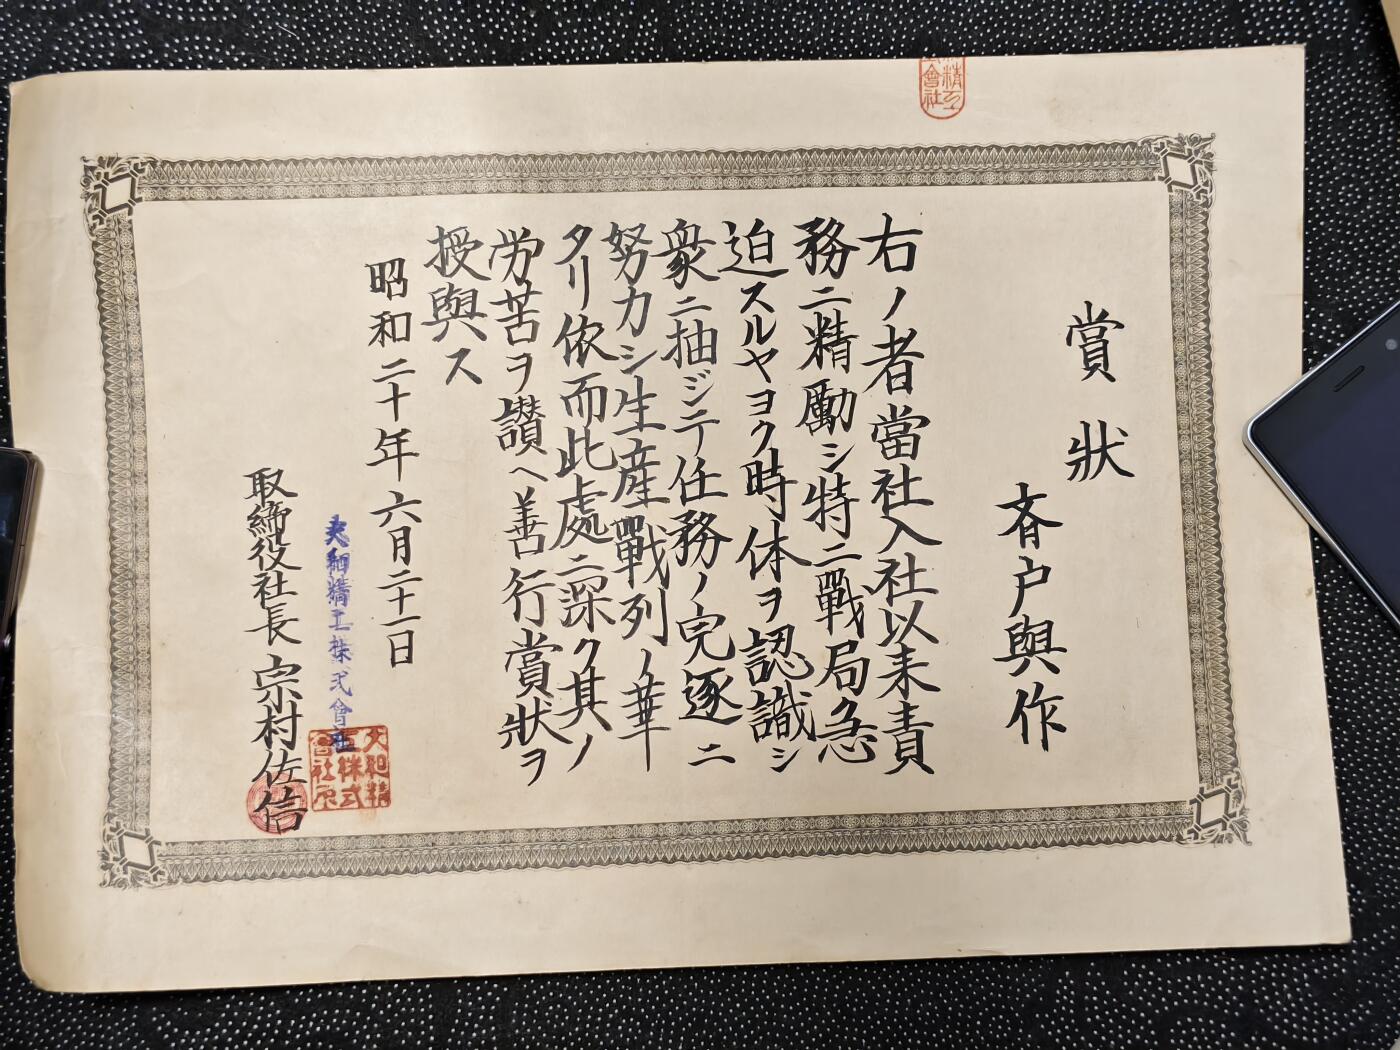 賞狀
斉户與作
右ノ者當社入社以来責
務ニ精勵シ特ニ戰局急
迫スルヤヨク時休ヲ認識シ
衆ニ抽ジテ任務ノ完遂ニ
努力シ生産戰列ノ華
タリ依而此處ニ深ク其ノ
労苦ヲ讃ヘ善行賞狀ヲ
授與ス
昭和二十年六月二十一日
大和精工株式會社
取締役社長 宗村佐信
精工
會社